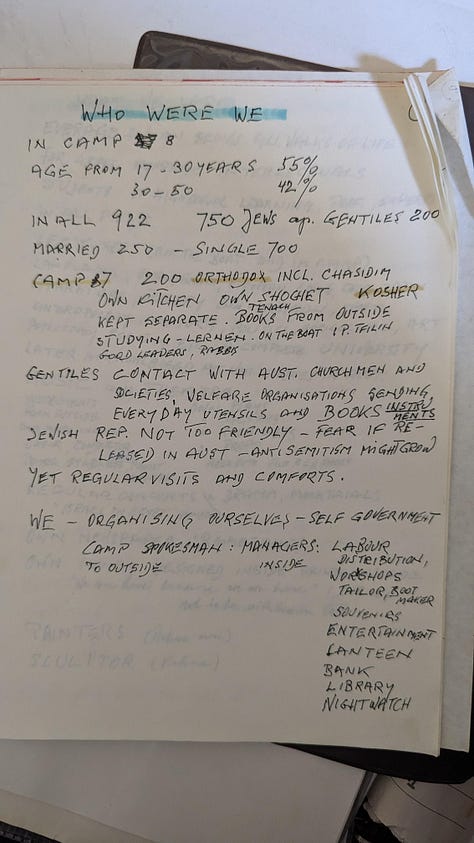 WHO WERE WE
IN CAMP 8
AGE FROM 17 - 30 YEARS 55%
30 - 50 42%
IN ALL 922 750 Jews ap. GENTILES 200
MARRIED 250 - SINGLE 700
CAMP 7 200 ORTHODOX INCL. CHASIDIM
OWN KITCHEN OWN SHOCHET KOSHER
KEPT SEPARATE. TENACH BOOKS FROM OUTSIDE
STUDYING - LERNEN. ON THE BOAT 1 P. TFILIN
GOOD LEADERS, RABBIS
GENTILES CONTACT WITH AUST. CHURCHMEN AND
SOCIETIES, WELFARE ORGANISATIONS SENDING,
EVERYDAY UTENSILS AND BOOKS INSTRUMENTS
JEWISH REP. NOT TOO FRIENDLY - FEAR IF RE-
LEASED IN AUST - ANTISEMITISM MIGHT GROW
YET REGULAR VISITS AND COMFORTS.
WE - ORGANISING OURSELVES - SELF GOVERNMENT
CAMP SPOKESMAN : MANAGERS: LABOUR
TO OUTSIDE INSIDE DISTRIBUTION,
WORKSHOPS
TAILOR, BOOT
MAKER
SOUVENIRS
ENTERTAINMENT
CANTEEN
BANK
LIBRARY
NIGHTWATCH
PAINTERS
SCULPTOR